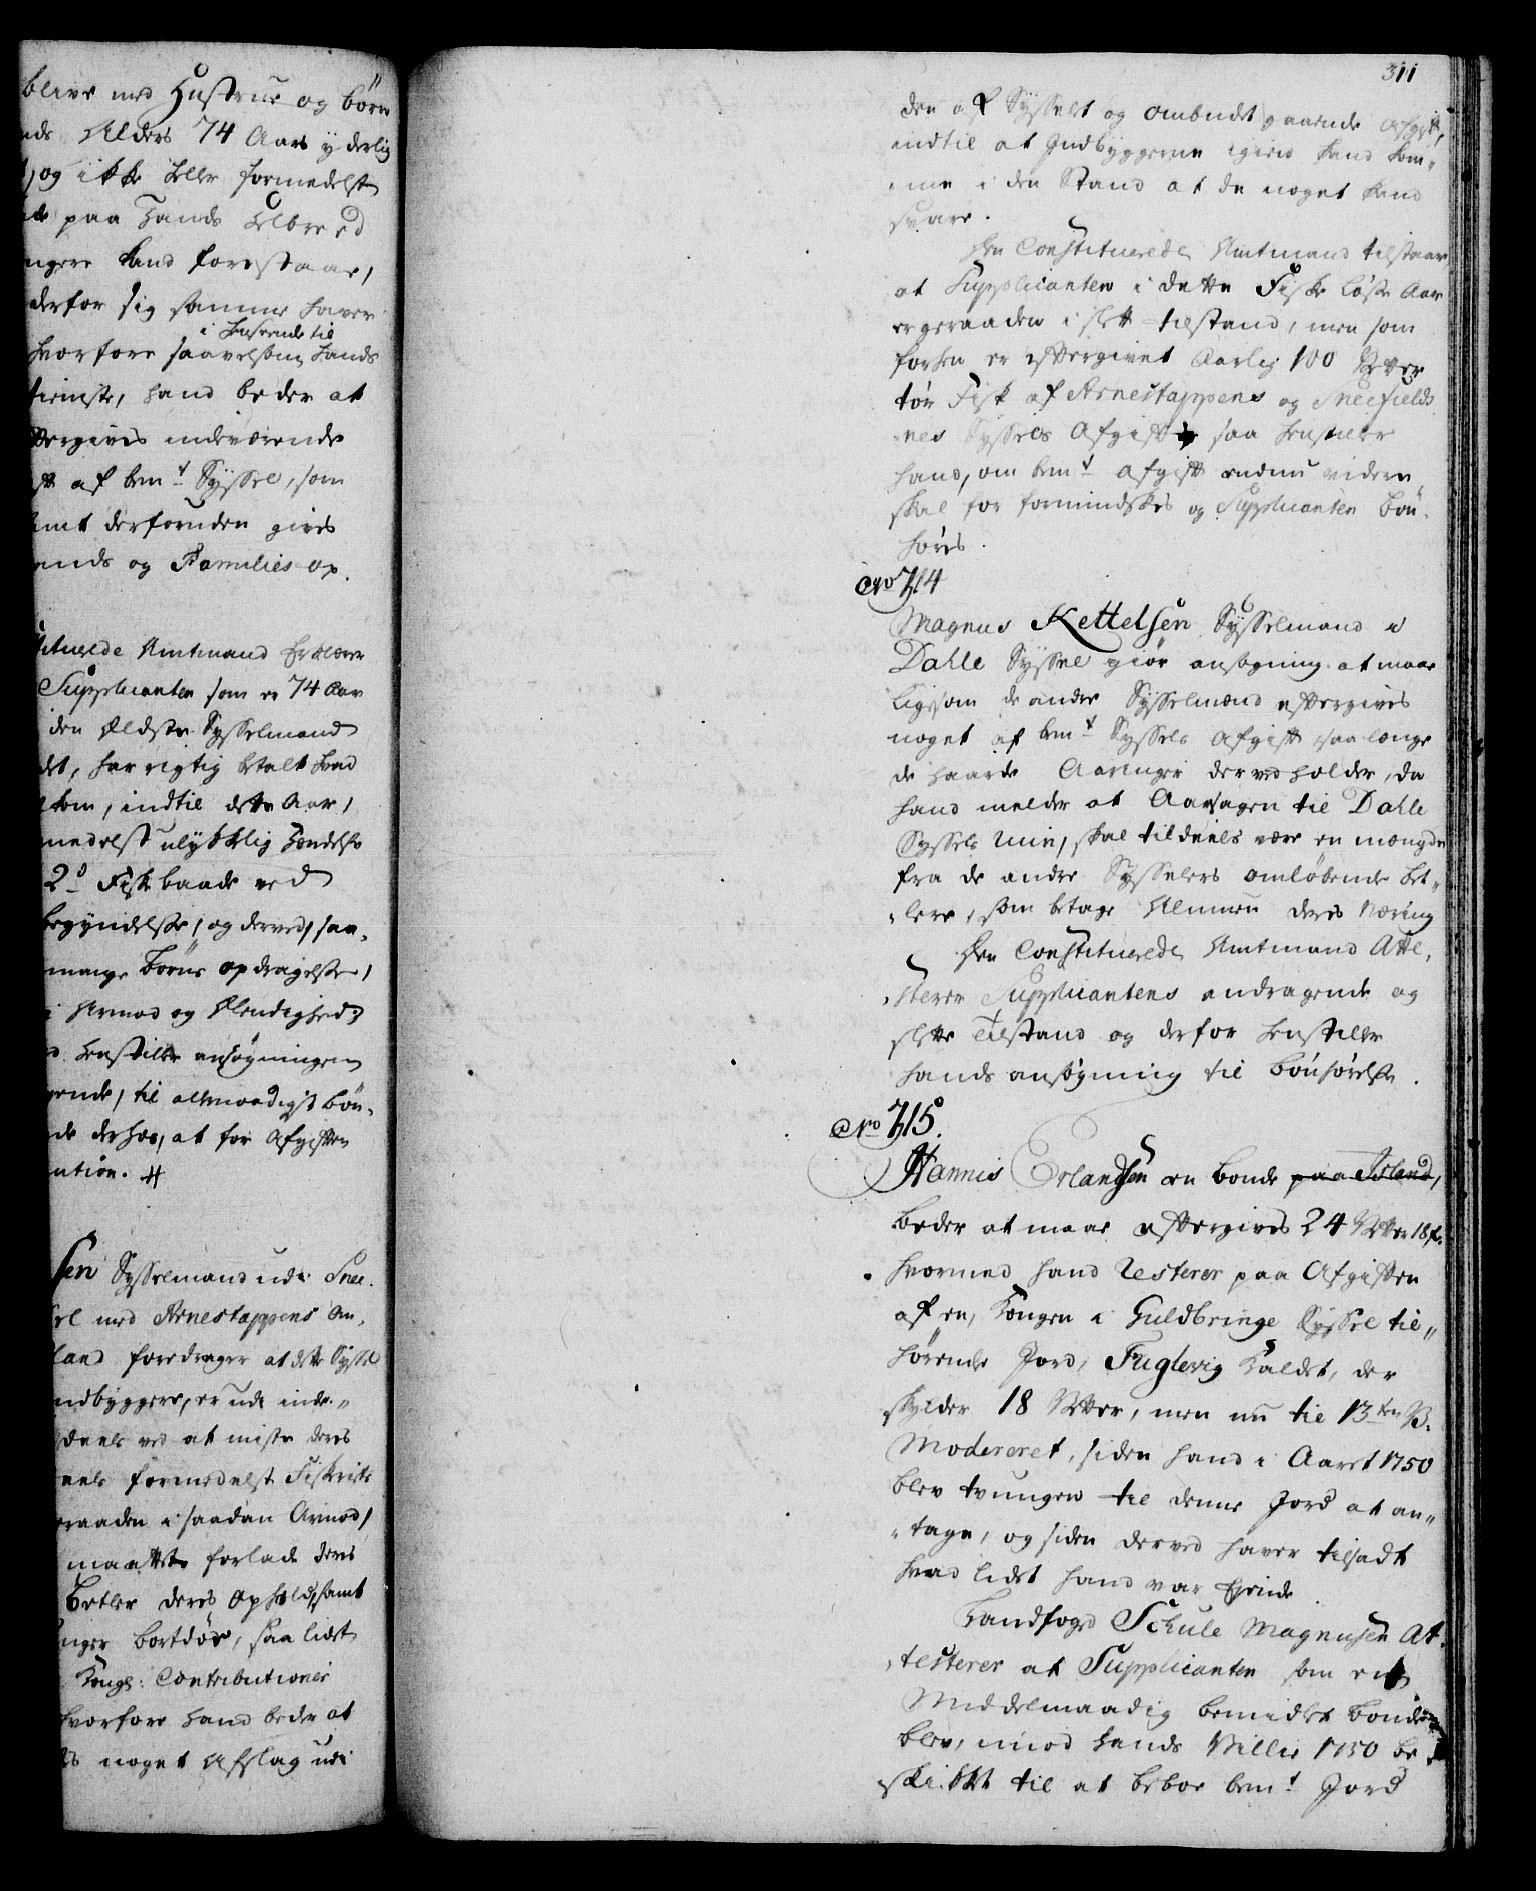 blive med Hustrue og børn
Alders 74 Aar yderlig
og ikke heller formedelst
paa Hands Helbred
ngere kand forestaae,
derfor sig samme haver
i henseende til
hvorfore saavelsom Hands
tieniste, hand beder at
ftergives indeværende
af bemt Syssel, som
amt derforuden gives
og Families op-
tituerede Amtmand Erklærer
Supplicanten som er 74 Aar
den Ældste Sysselmand
det, har rigtig betalt hvad
kom, indtil dette Aar,
medelst ulykkelig Hændelse
2de Fiskebaade ved
begyndelse, og derved, saa
mange børns opdragelse,
i Armod og Elendighed;
henstiller ansøgningen
til allernaadigst bøn-
derhos, at for Afgiften
ntion. #
sen Sysselmand udi Snee-
el med Arnestappens Om-
land foredrager at dette Syssel
ndbyggere, er udi inde-
deels ved at miste deres
eels formedelst Fiskeriets
eraaden i saadan Armod,
maattet forlade deres
Betler deres Ophold, samt
nger bortdøe, saa lidet
Kongl: Contributioner
hvorfore hand beder at
noget Afslag udi
311
den af Sysselet og Ombudet gaaende Afgift,
indtil at Indbyggerne igien kand kom-
me i den Stand at de noget kand
svare.
Hr Constituerede Amtmand tilstaar
at Supplicanten i dette Fiskeløse Aar
er geraaden i slet tilstand, men som
forhen er eftergivet Aarlig 100 Vetter
tør Fisk af Arnestappens og Sneefields
nes Syssels Afgift saa henstiller
hand, om bemt afgift endnu videre
skal for formindskes og Supplicanten bøn-
høres.
No 714
Magnus Kettelsen Sysselmand i
Dahle Syssel giør ansøgning at maae
ligesom de andre Sysselmænd eftergives
noget af bemt Syssels Afgift saa længe
de haarde Aaringer derved holder, da
hand melder at Aarsagen til Dahle
Syssels ruin, skal tildeels være en mængde
fra de andre Sysseler omløbende Bet-
lere, som betage Almuen deres Næring
Hr Constituerede Amtmand Atte-
sterer Supplicantens andragende og
slette Tilstand og derfor henstiller
hands ansøgning til bønhørelse.
No 715.
Hannis Erlandsen en bonde paa Island,
beder at maae eftergives 24 Vetter 18 f.
hvormed hand Resterer paa Afgiften
af en, Kongen i Guldbringe Syssel til-
hørende Jord, Fuglevig kaldet, der
skylder 18 Vetter, men nu til 13ten V.
Modereret, siden hand i Aaret 1750
blev tvungen til denne Jord at an-
tage, og siden derved haver tilsadt
hvad lidet hand var Ejende
Landfoged Schule Magnusen At-
testerer at Supplicanten som en
Middelmaadig bemidlet bonde
blev, imod hands Villie 1750 be
skikket til at beboe bemt Jord